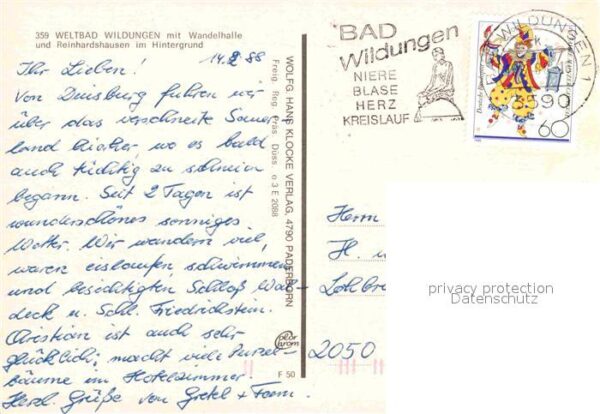 359 WELTBAD WILDUNGEN mit Wandelhalle
und Reinhardshausen im Hintergrund
14.2.88
Ihr Lieben!
Von Duisburg fuhren wir
über das verschneite Sauer-
land hierher, wo es bald
auch tüchtig zu schneien
begann. Seit 2 Tagen ist
wunderschönes sonniges
Wetter. Wir wandern viel,
waren eislaufen, schwimmen
und besichtigten Schloß Wal-
deck u. Schl. Friedrichstein.
Christian ist auch sehr
glücklich; macht viele Purzel-
bäume im Hotelzimmer.
Herzl. Grüße von Gretel + Fam.
WOLFG. HANS KLOCKE VERLAG, 4790 PADERBORN
Freig. Reg. Präs. Düss. o 3 E 2088
color
chrom
F 50
BAD
Wildungen
NIERE
BLASE
HERZ
KREISLAUF
WILDUNGEN 1
3590
60
Herrn
H. u
2050
privacy protection
Datenschutz